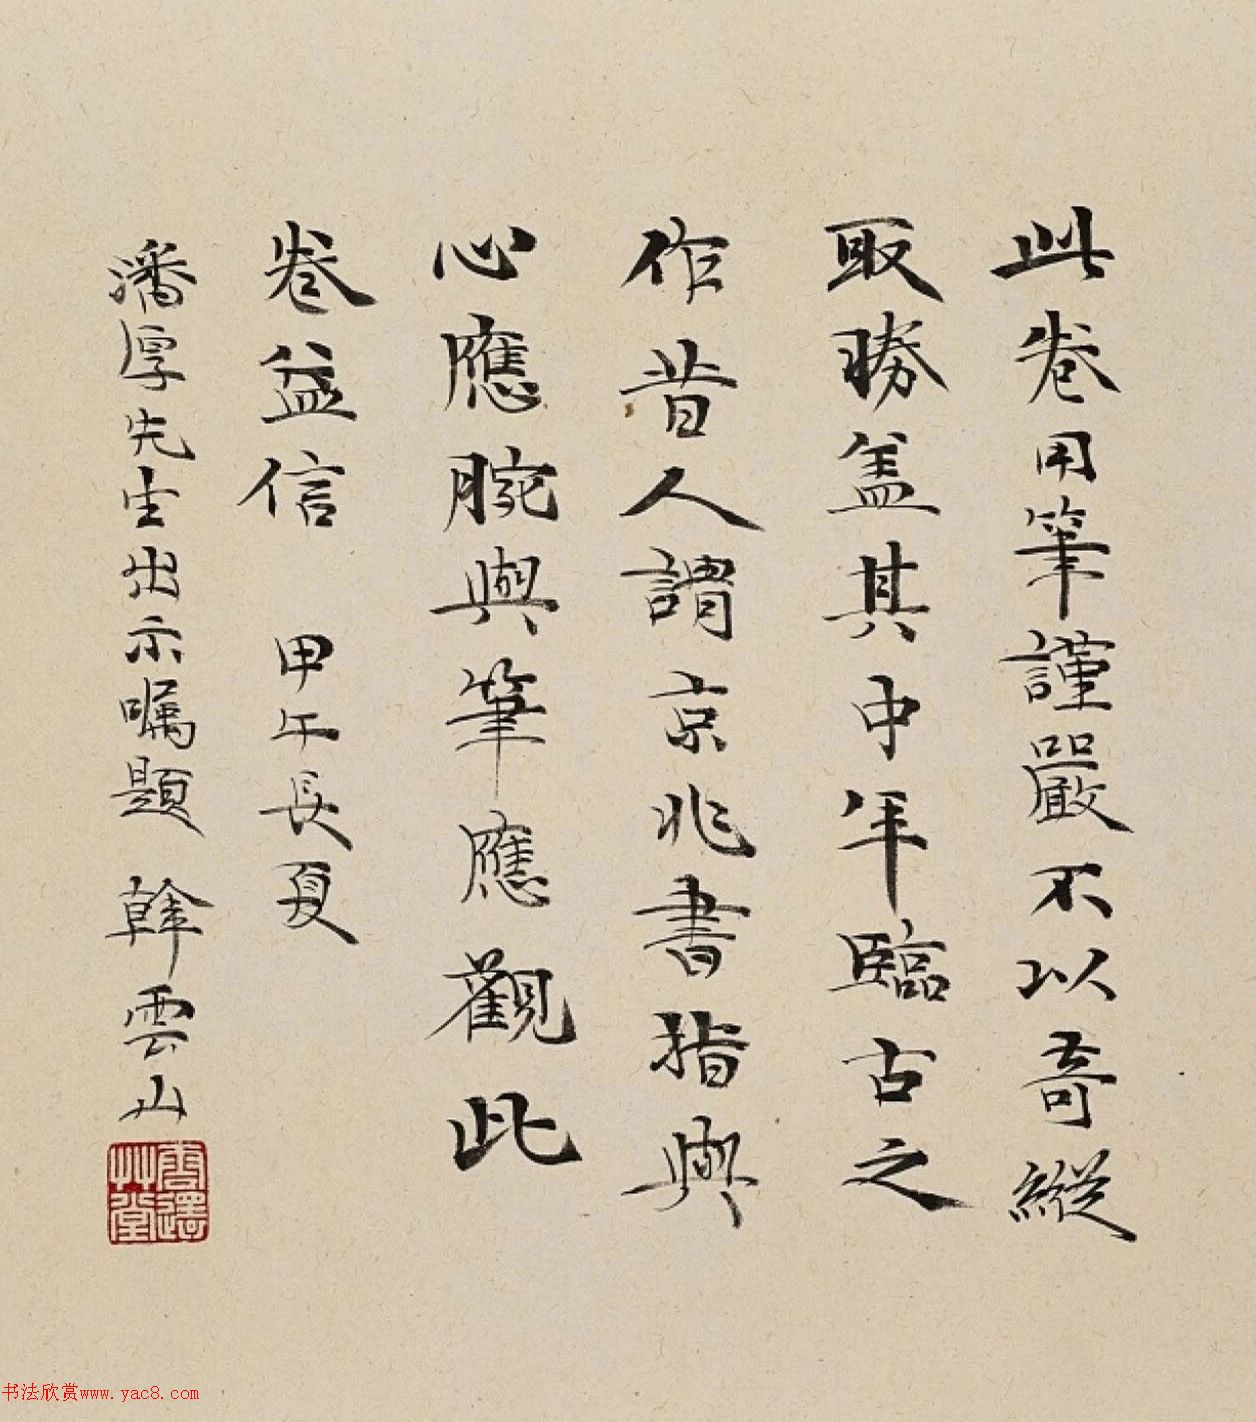 此卷用筆謹嚴不以奇縱
取勝盖其中年臨古之
作昔人謂京兆書指與
心應腕與筆應觀此
卷益信 甲午長夏
潘厚先生出示嘱題 韓雲山
书法欣赏www.yac8.com